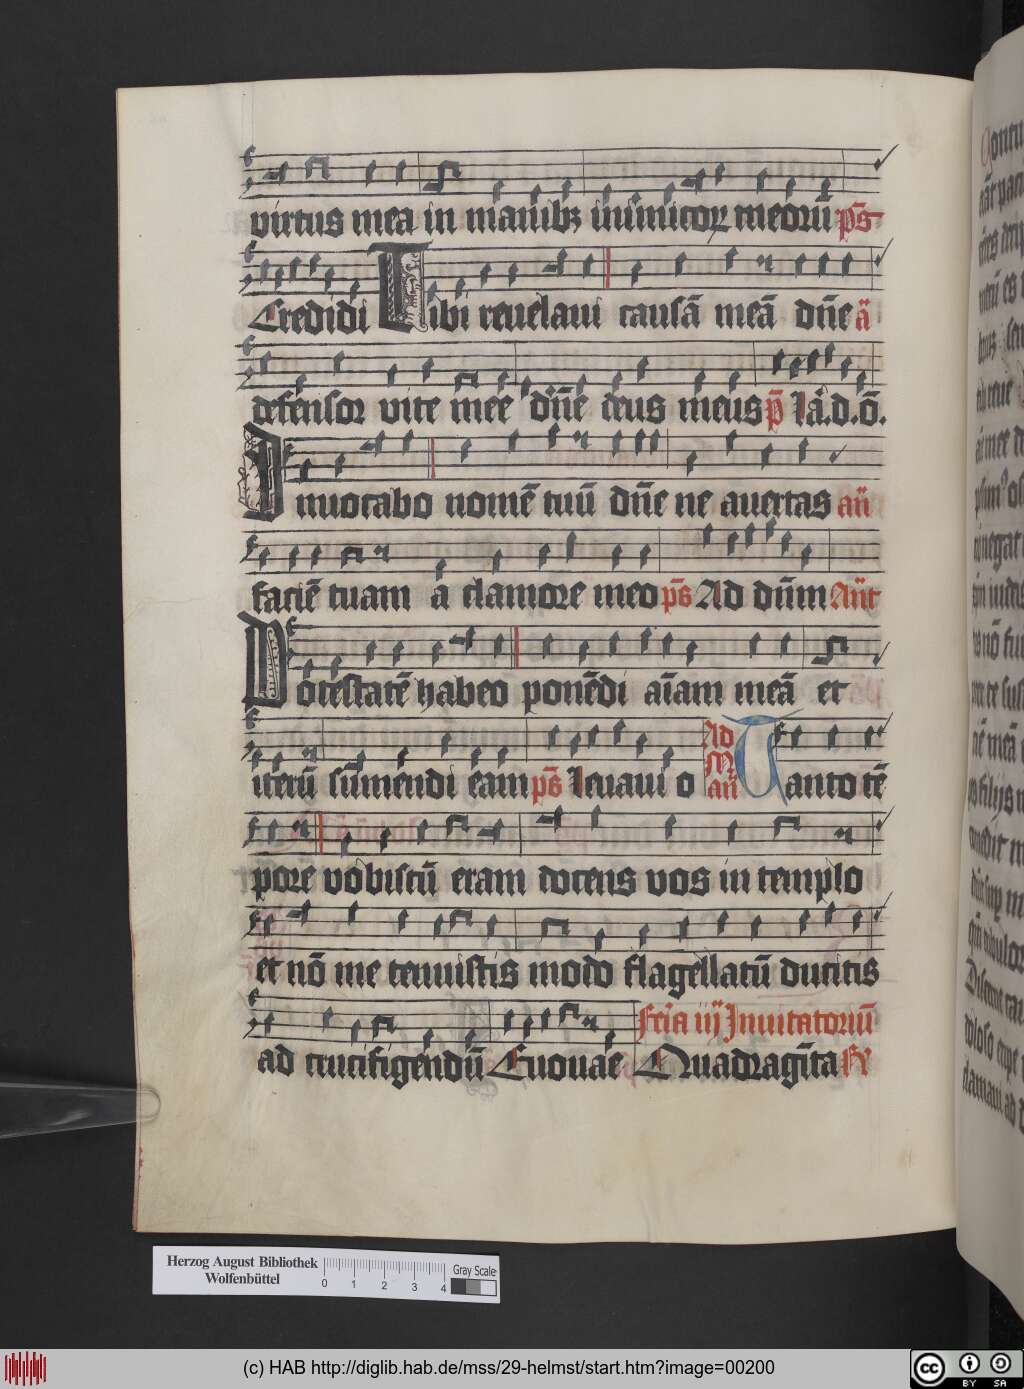 virtus mea in manibꝫ inimicoꝝ meoꝝ ps̄
Credidi Tibi reuelaui causā meā dn̄e ā
defensor vite mee dn̄e deus meus p̄ lā.d.ō.
Inuocabo nomē tuū dn̄e ne auertas an̄
faciē tuam a clamore meo ps̄ Ad dn̄m Ant̄
Potestatē habeo ponēdi aīam meā et
iterū sumendi eam ps̄ leuaui o Ad M̄ an̄ Tanto tē
pore vobiscū eram docens vos in templo
et nō me tenuistis modo flagellatū ducitis
ad crucifigendū Euouae Feria iij Inuitatoriū
Quadragīta
Herzog August Bibliothek
Wolfenbüttel
0 1 2 3 4
Gray Scale
(c) HAB http://diglib.hab.de/mss/29-helmst/start.htm?image=00200
cc BY SA